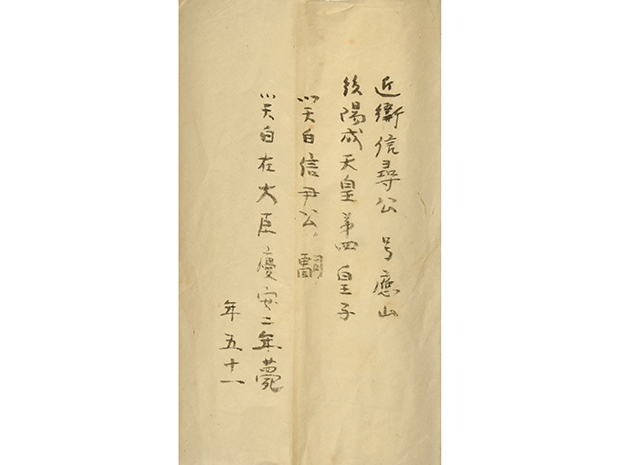 近衛信尋公 号應山
後陽成天皇第四皇子
関白信尹公 嗣
関白左大臣慶安二年薨
年五十一